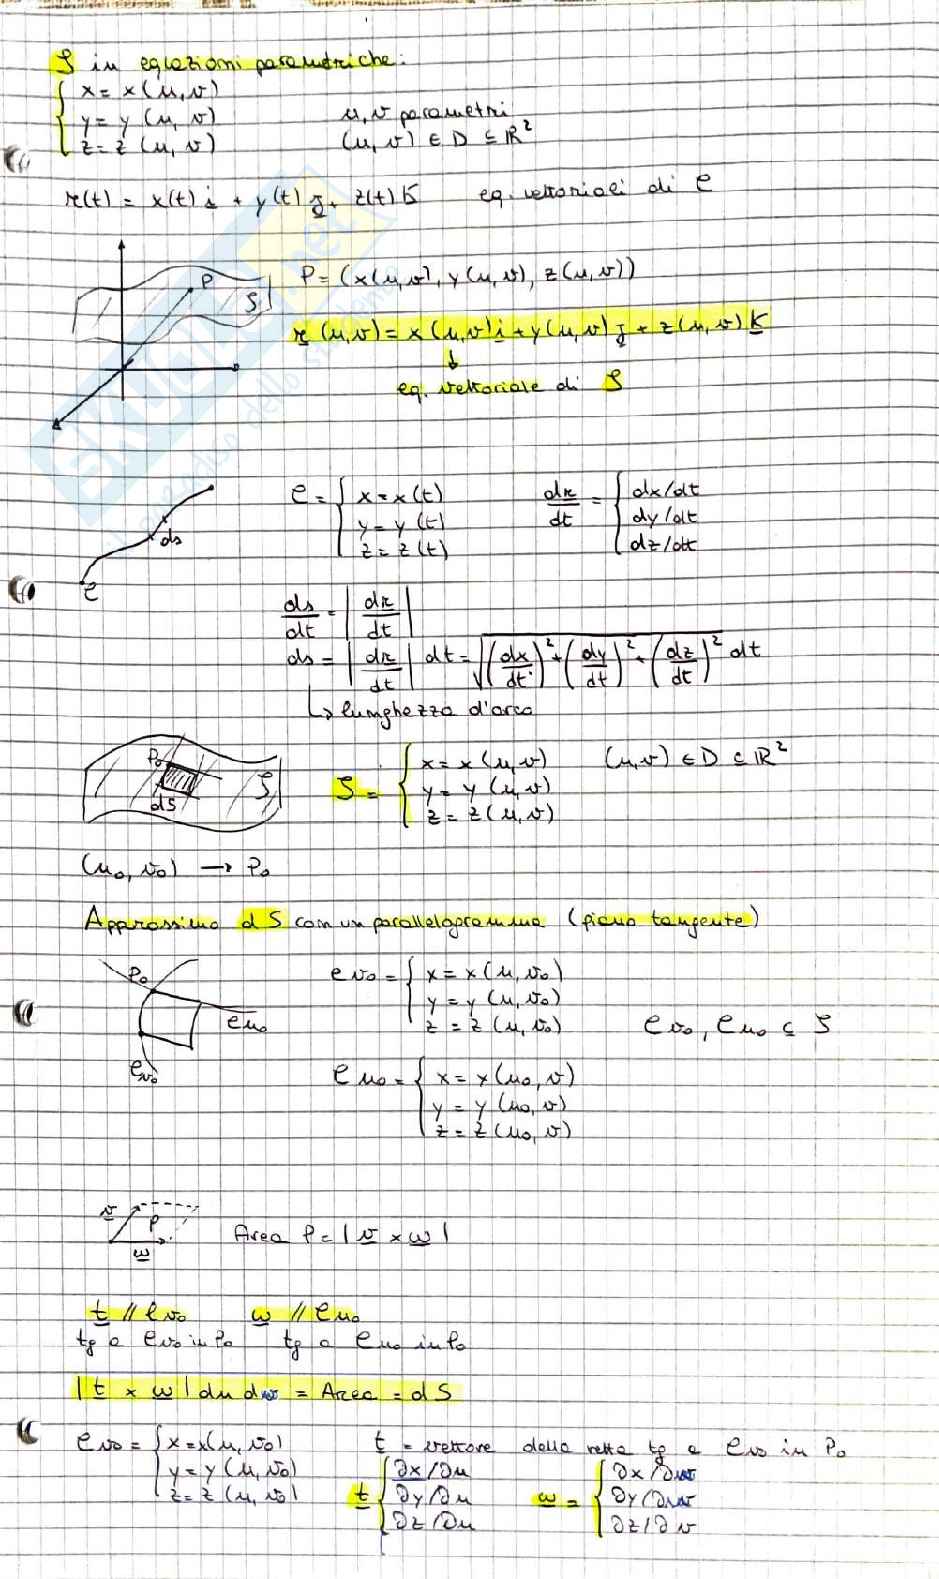 S in equazioni parametriche:
{ x = x(u,v)
y = y(u,v)    u,v parametri
z = z(u,v)    (u,v) ∈ D ⊆ ℝ²
r(t) = x(t) i + y(t) j + z(t) k    eq. vettoriali di C
P = (x(u,v), y(u,v), z(u,v))
P
S
r(u,v) = x(u,v) i + y(u,v) j + z(u,v) k
↓
eq. vettoriale di S
C = { x = x(t)    dr/dt = { dx/dt
y = y(t)    dy/dt
z = z(t)    dz/dt
ds
C
ds/dt = |dr/dt|
ds = |dr/dt| dt = √((dx/dt)² + (dy/dt)² + (dz/dt)²) dt
↳ lunghezza d'arco
P₀
dS
S
S = { x = x(u,v)    (u,v) ∈ D ⊆ ℝ²
y = y(u,v)
z = z(u,v)
(u₀, v₀) → P₀
Approssimo dS con un parallelogramma (piano tangente)
P₀
C u₀
C v₀
C v₀ = { x = x(u,v₀)
y = y(u,v₀)
z = z(u,v₀)    C v₀, C u₀ ⊆ S
C u₀ = { x = x(u₀,v)
y = y(u₀,v)
z = z(u₀,v)
v
P
w
Area P = |v × w|
t // C v₀    w // C u₀
tg a C v₀ in P₀    tg a C u₀ in P₀
|t × w| du dv = Area = dS
C v₀ = { x = x(u,v₀)    t = vettore della retta tg a C v₀ in P₀
y = y(u,v₀)
z = z(u,v₀)
t { ∂x/∂u    w = { ∂x/∂v
∂y/∂u    ∂y/∂v
∂z/∂u    ∂z/∂v